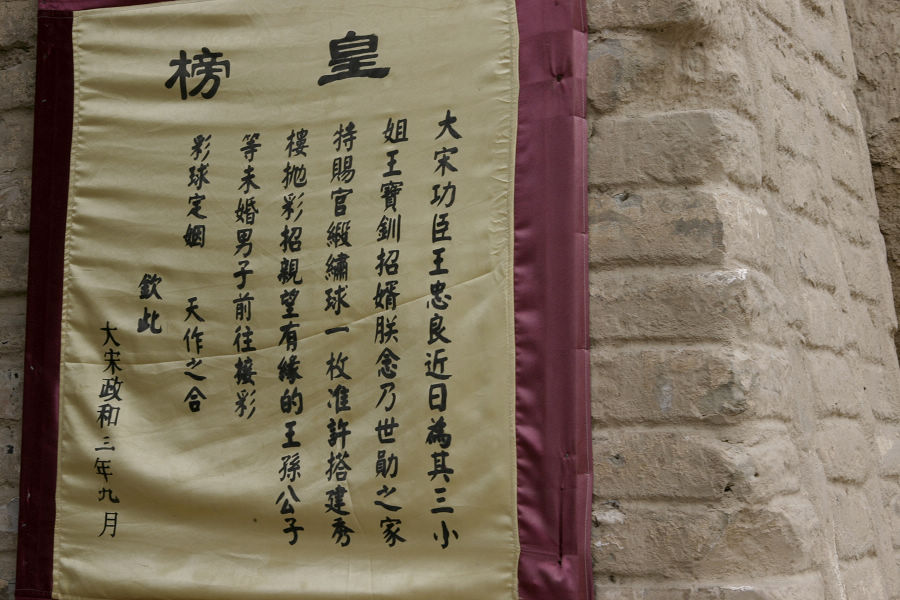 皇榜
大宋功臣王忠良近日為其三小
姐王寶釧招婿朕念乃世勛之家
特賜官緞繡球一枚准許搭建秀
樓抛彩招親望有緣的王孫公子
等未婚男子前往接彩
彩球定姻 天作之合
欽此
大宋政和三年九月